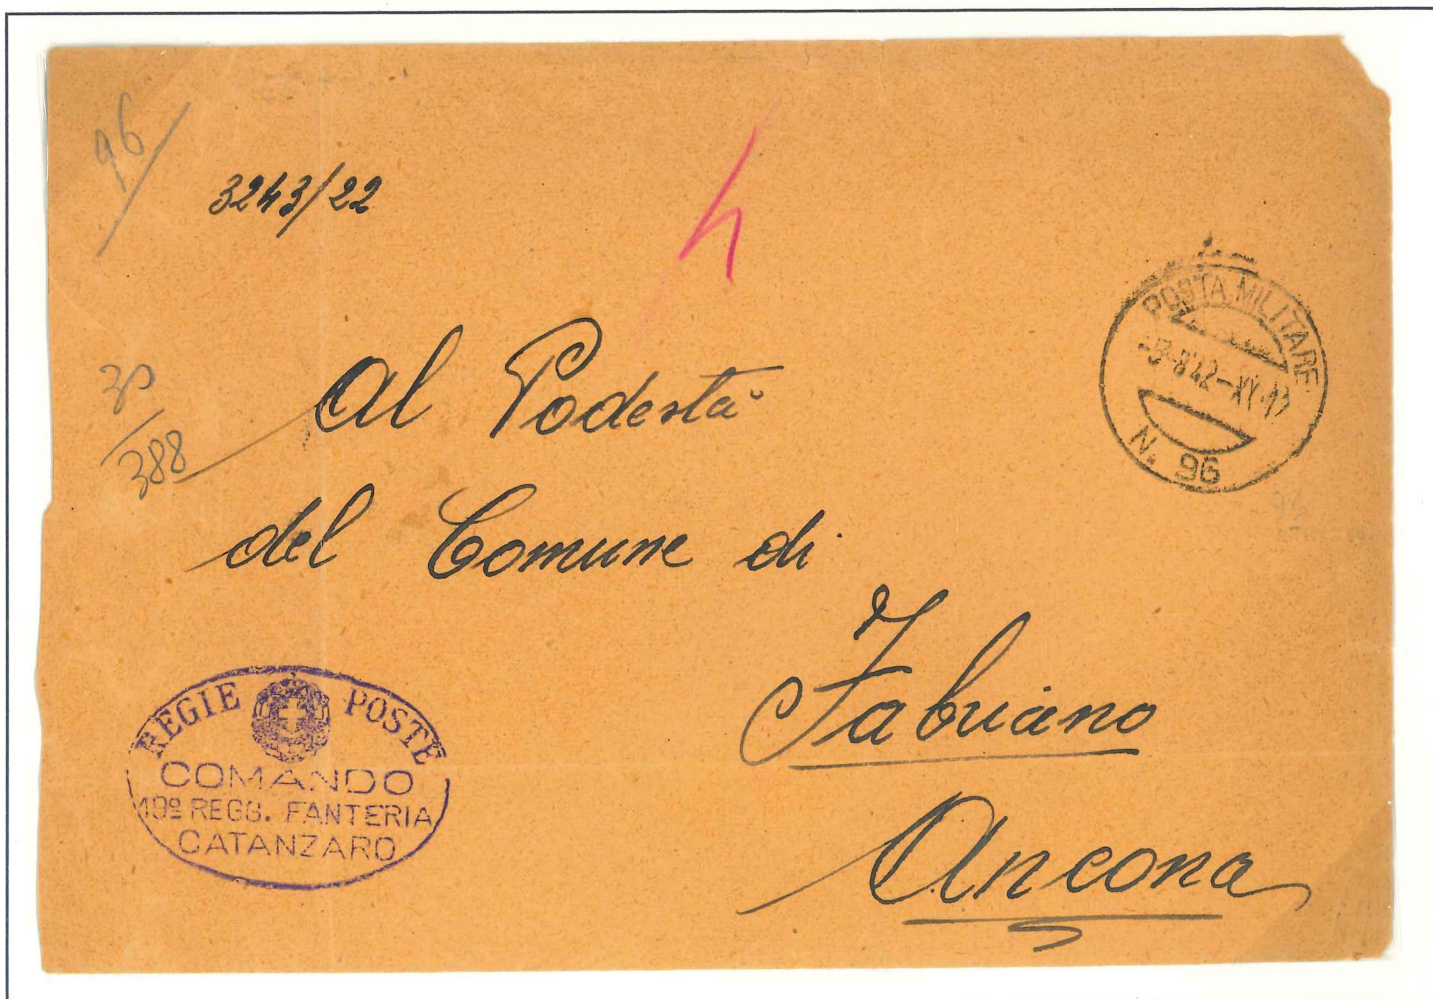 96
3243/22
POSTA MILITARE
-8 42-XX
N. 96
30
388
Al Podestà
del Comune di
Fabriano
Ancona
REGIE POSTE
COMANDO
19º REGG. FANTERIA
CATANZARO